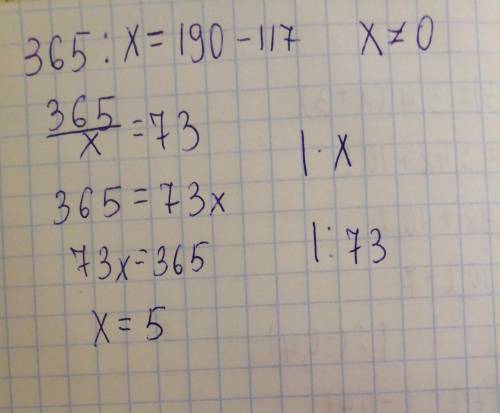 365 : x = 190 - 117 x ≠ 0
365/x = 73 | · x
365 = 73x
73x = 365 | : 73
x = 5